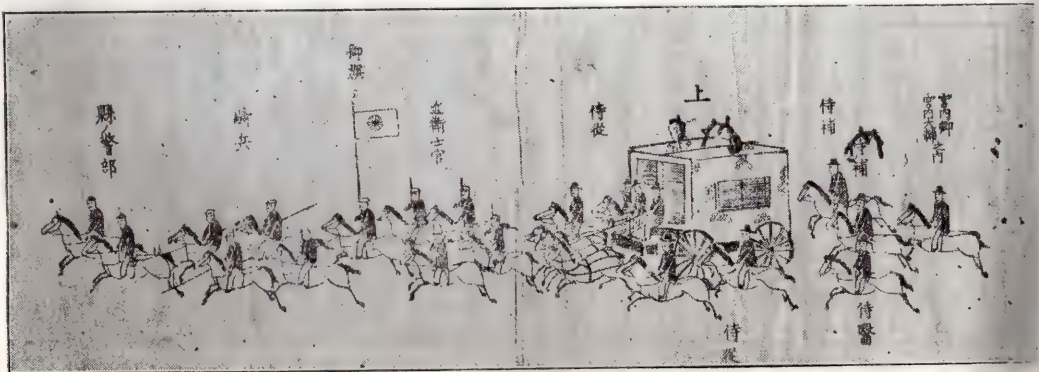 宮内卿
宮内輔ノ内
侍補
侍補
侍醫
上
侍從
侍從
近衛士官
御旗
騎兵
縣ノ警部